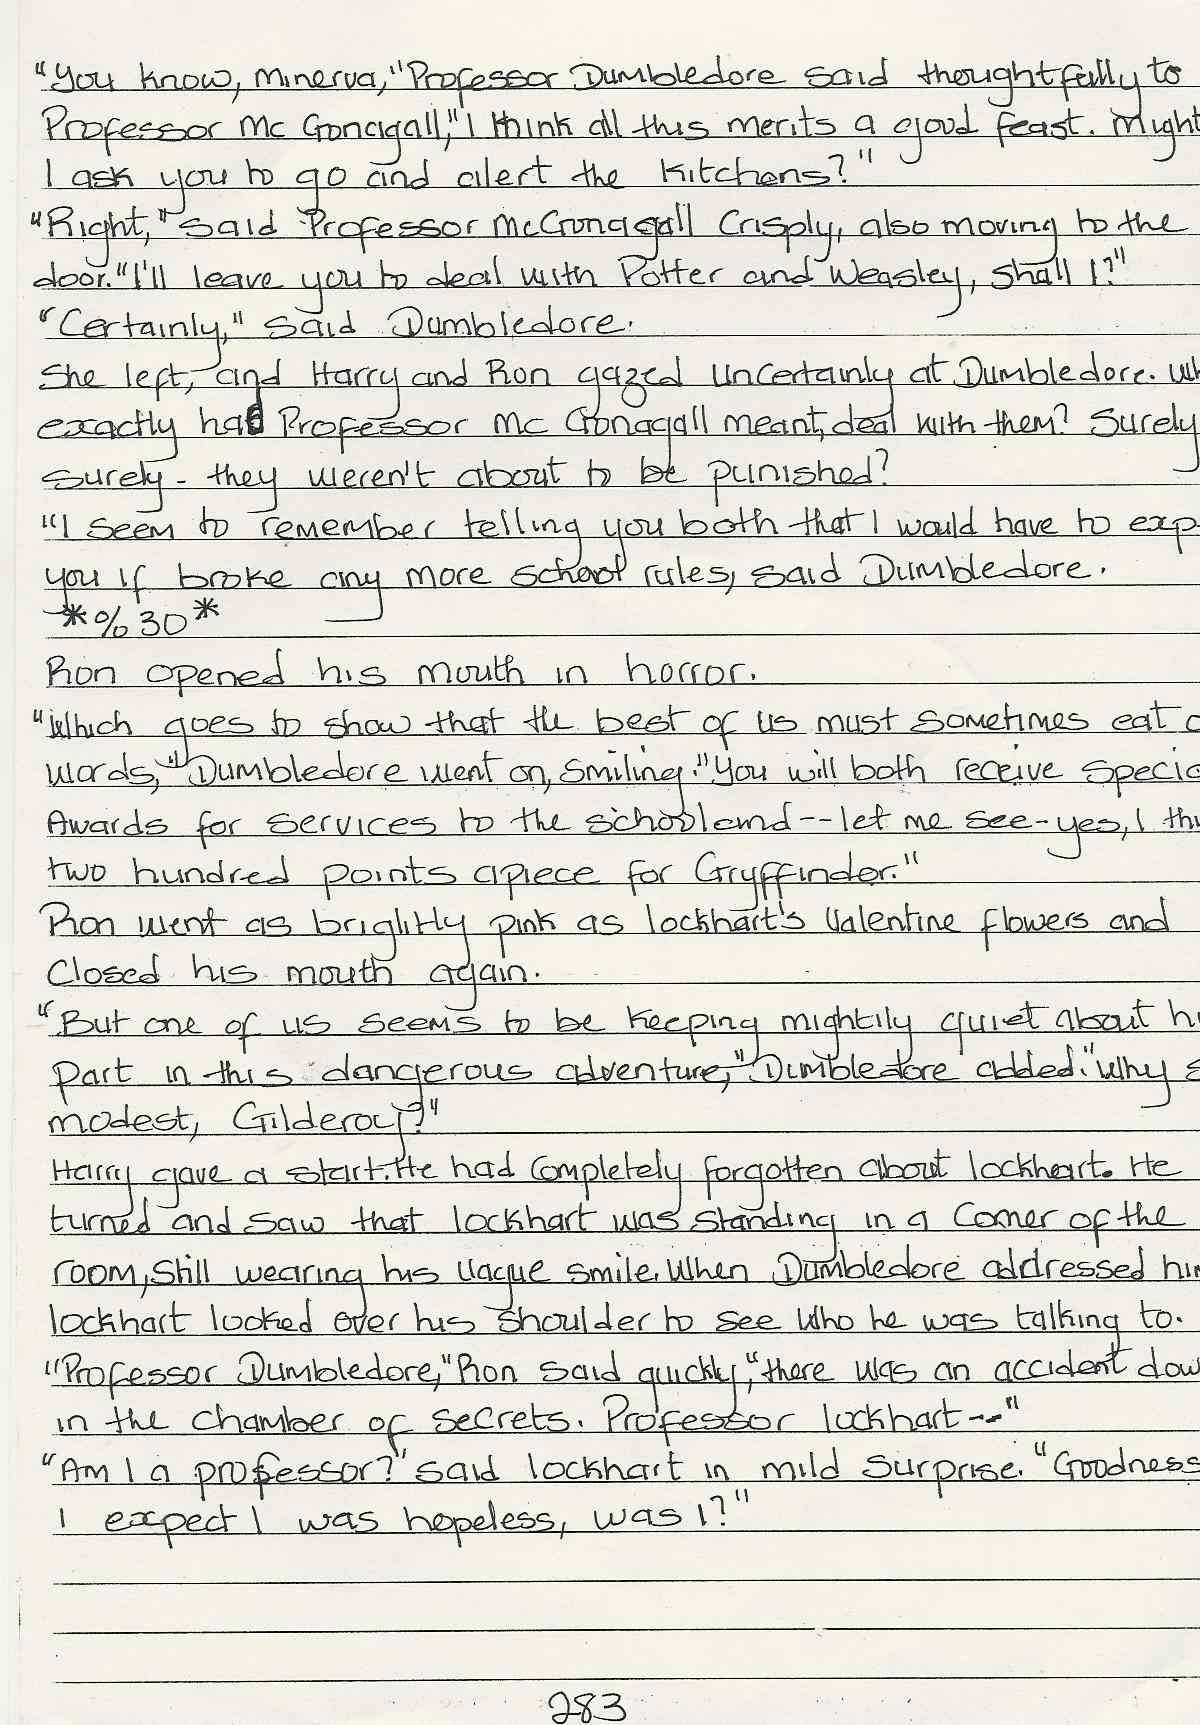 "You know, Minerva," Professor Dumbledore said thoughtfully to
Professor Mc Gonagall," I think all this merits a good feast. Might
I ask you to go and alert the kitchens?"
"Right," said Professor McGonagall Crisply, also moving to the
door. "I'll leave you to deal with Potter and Weasley, shall I?"
"Certainly," said Dumbledore.
She left, and Harry and Ron gazed uncertainly at Dumbledore. Wh
exactly had Professor Mc Gonagall meant, deal with them? Surely
surely - they weren't about to be punished?
"I seem to remember telling you both that I would have to exp
you if broke any more school rules, said Dumbledore.
*% 30*
Ron opened his mouth in horror.
"Which goes to show that the best of us must sometimes eat o
words," Dumbledore went on, smiling. "You will both receive Specia
Awards for services to the school and -- let me see - yes, I thi
two hundred points apiece for Gryffindor."
Ron went as brightly pink as lockhart's Valentine flowers and
closed his mouth again.
"But one of us seems to be keeping mightily quiet about hi
part in this dangerous adventure," Dumbledore added. "Why s
modest, Gilderoy?"
Harry gave a start. He had completely forgotten about lockhart. He
turned and saw that lockhart was standing in a corner of the
room, still wearing his vague smile. When Dumbledore addressed him
lockhart looked over his shoulder to see who he was talking to.
"Professor Dumbledore," Ron said quickly, "there was an accident dow
in the chamber of secrets. Professor lockhart --"
"Am I a professor?" said lockhart in mild surprise. "Goodness
I expect I was hopeless, was I?"
283